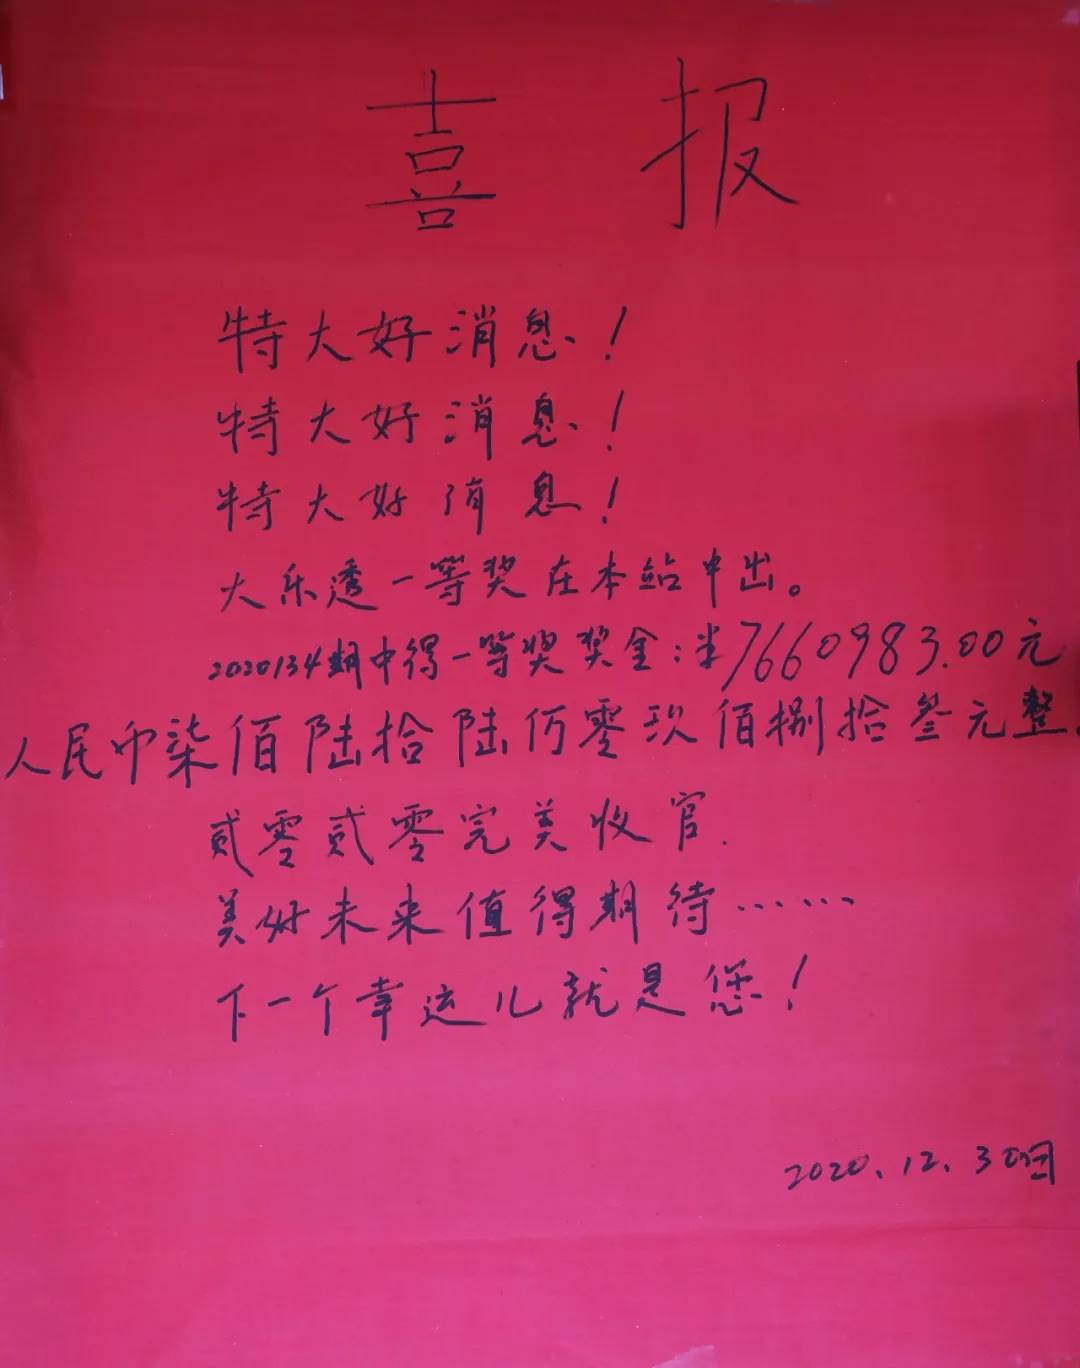 喜报
特大好消息!
特大好消息!
特大好消息!
大乐透一等奖在本站中出。
2020134期中得一等奖奖金:¥7660983.00元
人民币柒佰陆拾陆仟零玖佰捌拾叁元整.
贰零贰零完美收官.
美好未来值得期待……
下一个幸运儿就是您!
2020.12.30日